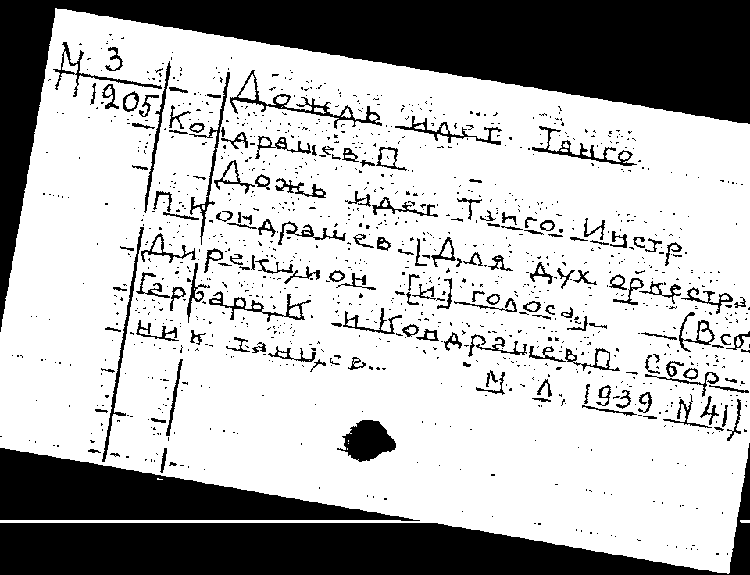 М 3
П 1205
Дождь идёт. Танго
Кондрашёв, П
Дожь идёт Танго. Инстр.
П. Кондрашёв. [Для дух оркестра
Дирекцион [и] голоса] — (В сб
Гарбарь, К. и Кондрашёв, П. Сбор-
ник танцев...
М. Л. 1939. N 41)